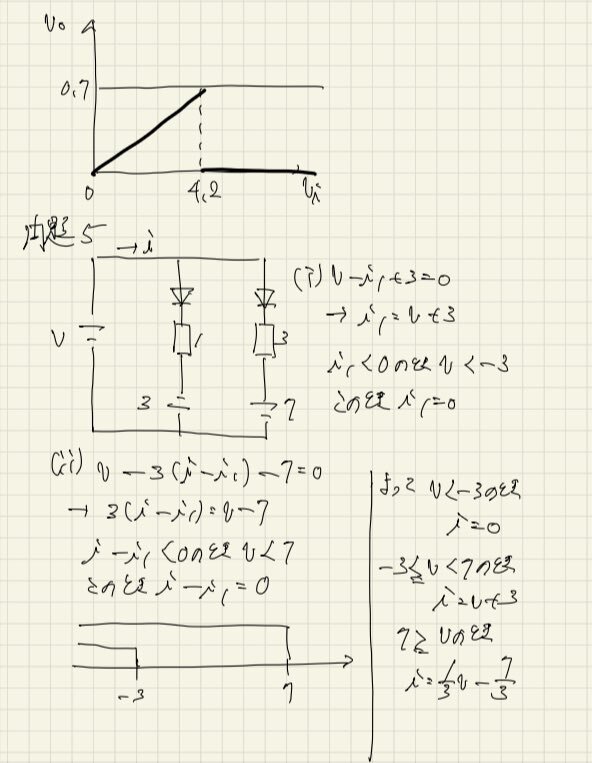 v₀
0.7
0
4.2
vi
問題 5
→ i
V
1
3
3
7
(i) v - i₁ + 3 = 0
→ i₁ = v + 3
i₁ < 0 のとき v < -3
このとき i₁ = 0
(ii) v - 3(i - i₁) - 7 = 0
→ 3(i - i₁) = v - 7
i - i₁ < 0 のとき v < 7
このとき i - i₁ = 0
-3
7
よって v < -3 のとき
i = 0
-3 ≦ v < 7 のとき
i = v + 3
7 ≧ v のとき
i = 1/3 v - 7/3